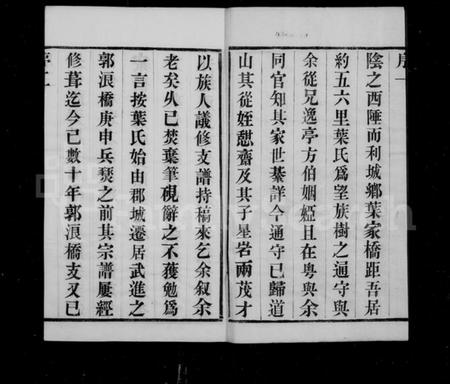 序一
陰之西陲而利城鄉葉家橋距吾居
約五六里葉氏爲望族樹之通守與
余從兄逸亭方伯姻婭且在粵與余
同官知其家世綦詳今通守已歸道
山其從姪憩齋及其子星岩雨茂才
以族人議修支譜持稿來乞余叙余
老矣久已焚棄筆硯辭之不獲勉爲
一言按葉氏始由郡城遷居武進之
郭浪橋庚申兵燹之前其宗譜屢經
修葺迄今已數十年郭浪橋支又已
序二